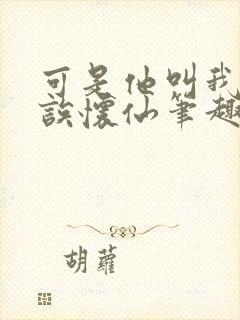 可是他叫我
誒懷仙筆趣
胡蘿